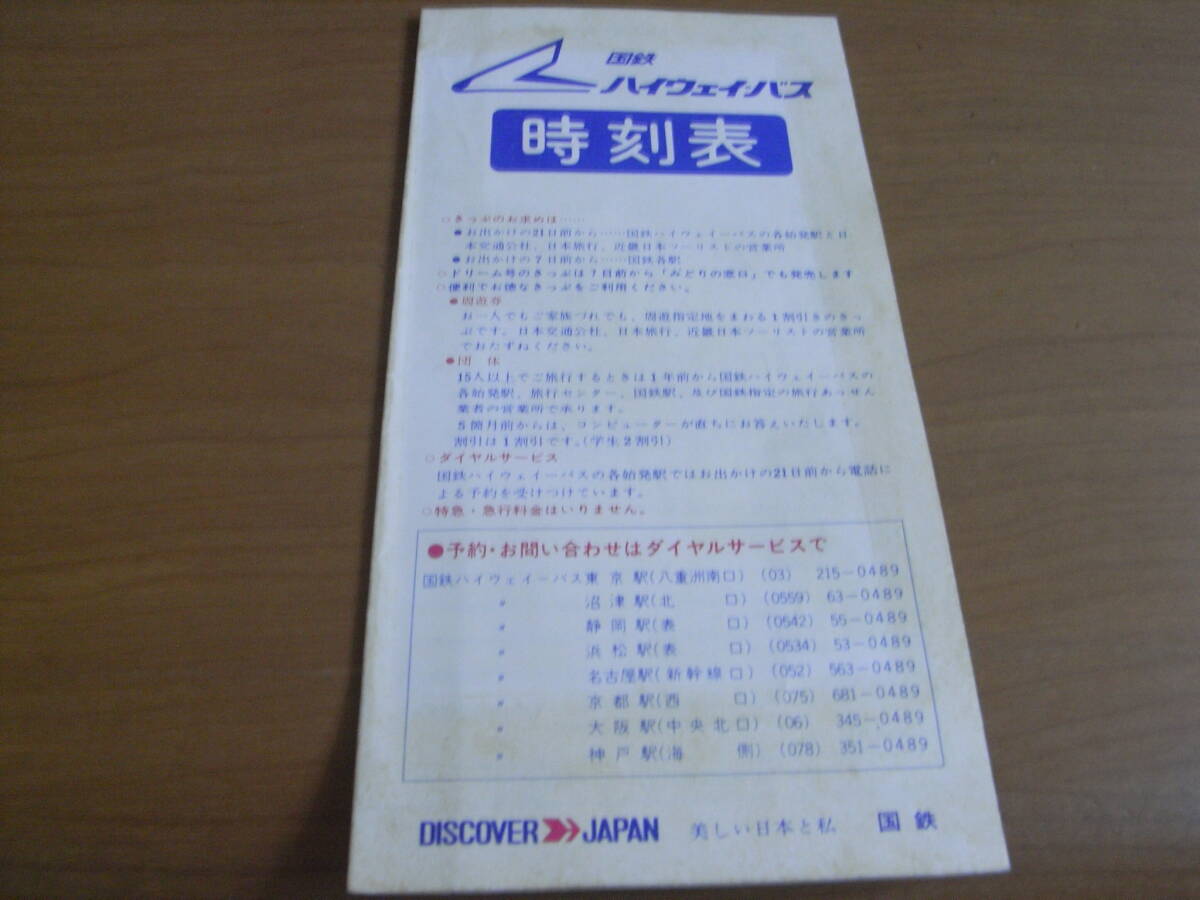 国鉄
ハイウェイ・バス
時刻表
○きっぷのお求めは……
●お出かけの21日前から……国鉄ハイウェイーバスの各始発駅と日
本交通公社、日本旅行、近畿日本ツーリストの営業所
●お出かけの7日前から……国鉄各駅
○ドリーム号のきっぷは7日前から「みどりの窓口」でも発売します
○便利でお徳なきっぷをご利用ください。
●周遊券
お一人でもご家族づれでも、周遊指定地をまわる1割引きのきっ
ぷです。日本交通公社、日本旅行、近畿日本ツーリストの営業所
でおたずねください。
●団 体
15人以上でご旅行するときは1年前から国鉄ハイウェイーバスの
各始発駅、旅行センター、国鉄駅、及び国鉄指定の旅行あっせん
業者の営業所で承ります。
5箇月前からは、コンピューターが直ちにお答えいたします。
割引は1割引です。(学生2割引)
○ダイヤルサービス
国鉄ハイウェイーバスの各始発駅ではお出かけの21日前から電話に
よる予約を受けつけています。
○特急・急行料金はいりません。
●予約・お問い合わせはダイヤルサービスで
国鉄ハイウェイーバス東京駅(八重洲南口) (03) 215-0489
〃 沼津駅(北口) (0559) 63-0489
〃 静岡駅(表口) (0542) 55-0489
〃 浜松駅(表口) (0534) 53-0489
〃 名古屋駅(新幹線口) (052) 563-0489
〃 京都駅(西口) (075) 681-0489
〃 大阪駅(中央北口) (06) 345-0489
〃 神戸駅(海側) (078) 351-0489
DISCOVER JAPAN 美しい日本と私 国鉄